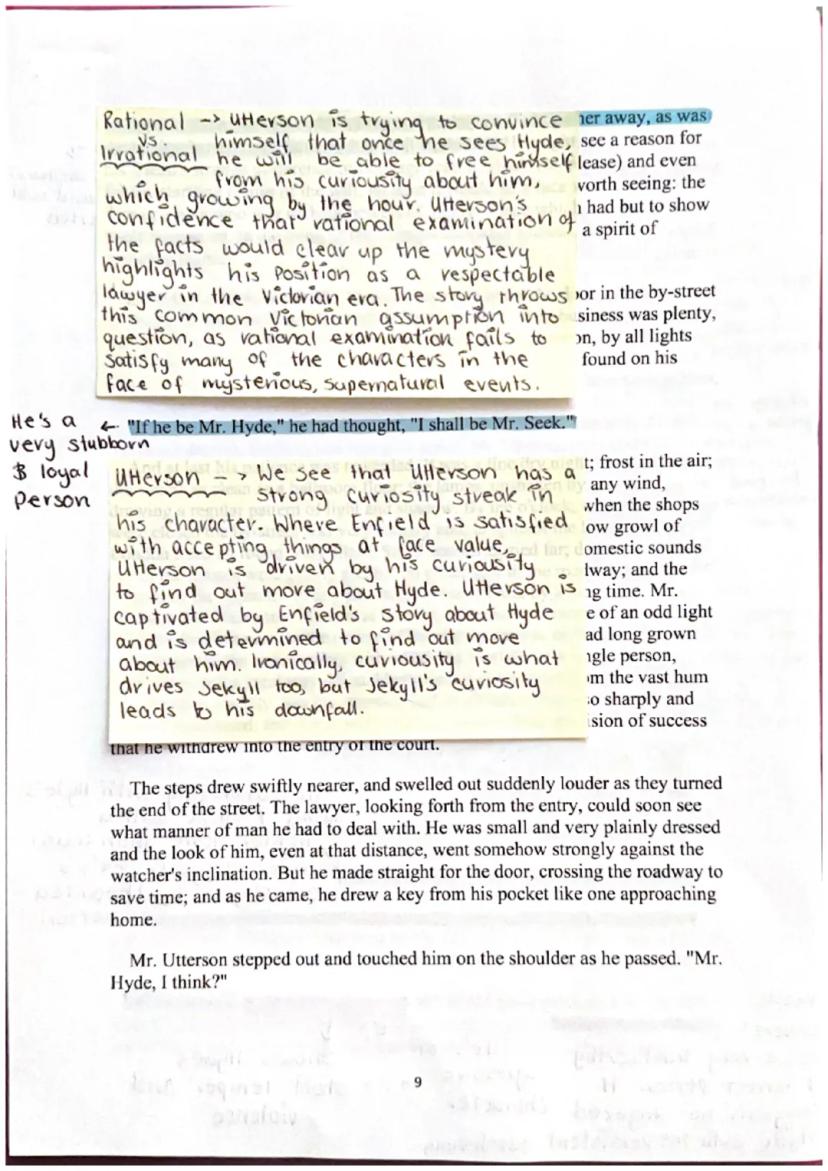 Rational -> Utterson is trying to convince
vs.
Irrational
himself that once he sees Hyde,
he will be able to free himself
from his curiousity about him,
which growing by the hour. Utterson's
confidence that rational examination of
the facts would clear up the mystery
highlights his position as a respectable
lawyer in the Victorian era. The story throws
this common Victorian assumption into
question, as rational examination fails to
satisfy many of the characters in the
face of mysterious, supernatural events.
her away, as was
see a reason for
lease) and even
worth seeing: the
had but to show
a spirit of
or in the by-street
siness was plenty,
on, by all lights
found on his
He's a
very stubborn
& loyal
person
← "If he be Mr. Hyde," he had thought, "I shall be Mr. Seek."
Utterson --> We see that Utterson has a
strong curiosity streak in
his character. Where Enfield is satisfied
with accepting things at face value,
Utterson is driven by his curiousity
to find out more about Hyde. Utterson is
captivated by Enfield's story about Hyde
and is determined to find out more
about him. Ironically, curiousity is what
drives Jekyll too, but Jekyll's curiosity
leads to his downfall.
t; frost in the air;
any wind,
when the shops
ow growl of
domestic sounds
lway; and the
ng time. Mr.
e of an odd light
ad long grown
ngle person,
om the vast hum
so sharply and
ision of success
that he withdrew into the entry of the court.
The steps drew swiftly nearer, and swelled out suddenly louder as they turned
the end of the street. The lawyer, looking forth from the entry, could soon see
what manner of man he had to deal with. He was small and very plainly dressed
and the look of him, even at that distance, went somehow strongly against the
watcher's inclination. But he made straight for the door, crossing the roadway to
save time; and as he came, he drew a key from his pocket like one approaching
home.
Mr. Utterson stepped out and touched him on the shoulder as he passed. "Mr.
Hyde, I think?"
9